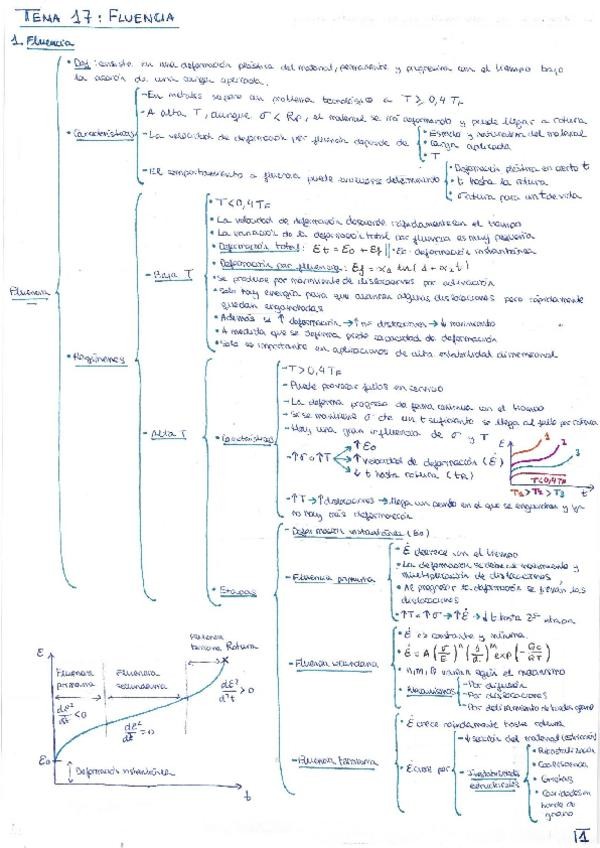 TEMA 17: FLUENCIA
1. Fluencia
Fluencia
• Def: consiste en una deformación plástica del material, permanente y progresiva con el tiempo bajo
la acción de una carga aplicada.
• Características
- En metales supone un problema tecnológico a T ≥ 0,4 TF
- A alta T, aunque σ < Rp, el material se irá deformando y puede llegar a rotura
- La velocidad de deformación por fluencia depende de
• Estado y naturaleza del material
• Carga aplicada
• T
- El comportamiento a fluencia puede evaluarse determinando
• Deformación plástica en cierto t
• t hasta la rotura
• σ rotura para un t de vida
• Regímenes
- Baja T
• T < 0,4 TF
• La velocidad de deformación desciende rápidamente con el tiempo
• La variación de la deformación total por fluencia es muy pequeña
• Deformación total: Et = E0 + Ef || • E0: deformación instantánea
• Deformación por fluencia: Ef = α1 ln(1 + α2 t)
• Se produce por movimiento de dislocaciones por activación
• Solo hay energía para que avancen algunas dislocaciones pero rápidamente
quedan enganchadas
• Además se ↑ deformación → ↑ nº dislocaciones → ↓ movimiento
• A medida que se deforma pierde capacidad de deformación
• Solo es importante en aplicaciones de alta estabilidad dimensional
- Alta T
• Características
- T > 0,4 TF
- Puede provocar fallos en servicio
- La deforma progresa de forma continua con el tiempo
- Si se mantiene σ cte un t suficiente se llega al fallo por rotura
- Hay una gran influencia de σ y T
- ↑σ o ↑T
↑ E0
↑ velocidad de deformación (Ė)
↓ t hasta rotura (tR)
E
1
2
3
T<0,4TF
t
T1 > T2 > T3
- ↑T → ↑ dislocaciones → llega un punto en el que se enganchan y ya
no hay más deformación
• Etapas
- Deformación instantánea (E0)
- Fluencia primaria
• Ė decrece con el tiempo
• La deformación se debe al movimiento y
multiplicación de dislocaciones
• Al progresar la deformación se frenan las
dislocaciones
• ↑T = ↑σ → ↑Ė → ↓ t hasta 2ª etapa
- Fluencia secundaria
• Ė es constante y mínima
• Ė = A (σ/E)^n (1/d)^m exp(-Qc/RT)
• n, m, Q varían según el mecanismo
• Mecanismos
- Por difusión
- Por dislocaciones
- Por deslizamiento de bordes grano
- Fluencia terciaria
• Ė crece rápidamente hasta rotura
• Ė crece por
- ↓ sección del material (estricción)
- Inestabilidades
estructurales
• Recristalización
• Coalescencia
• Grietas
• Cavidades en
borde de
grano
E
Fluencia
primaria
Fluencia
secundaria
Fluencia
terciaria
Rotura
dE²/dt < 0
dE²/dt = 0
dE²/d²t > 0
E0
Deformación instantánea
t
1